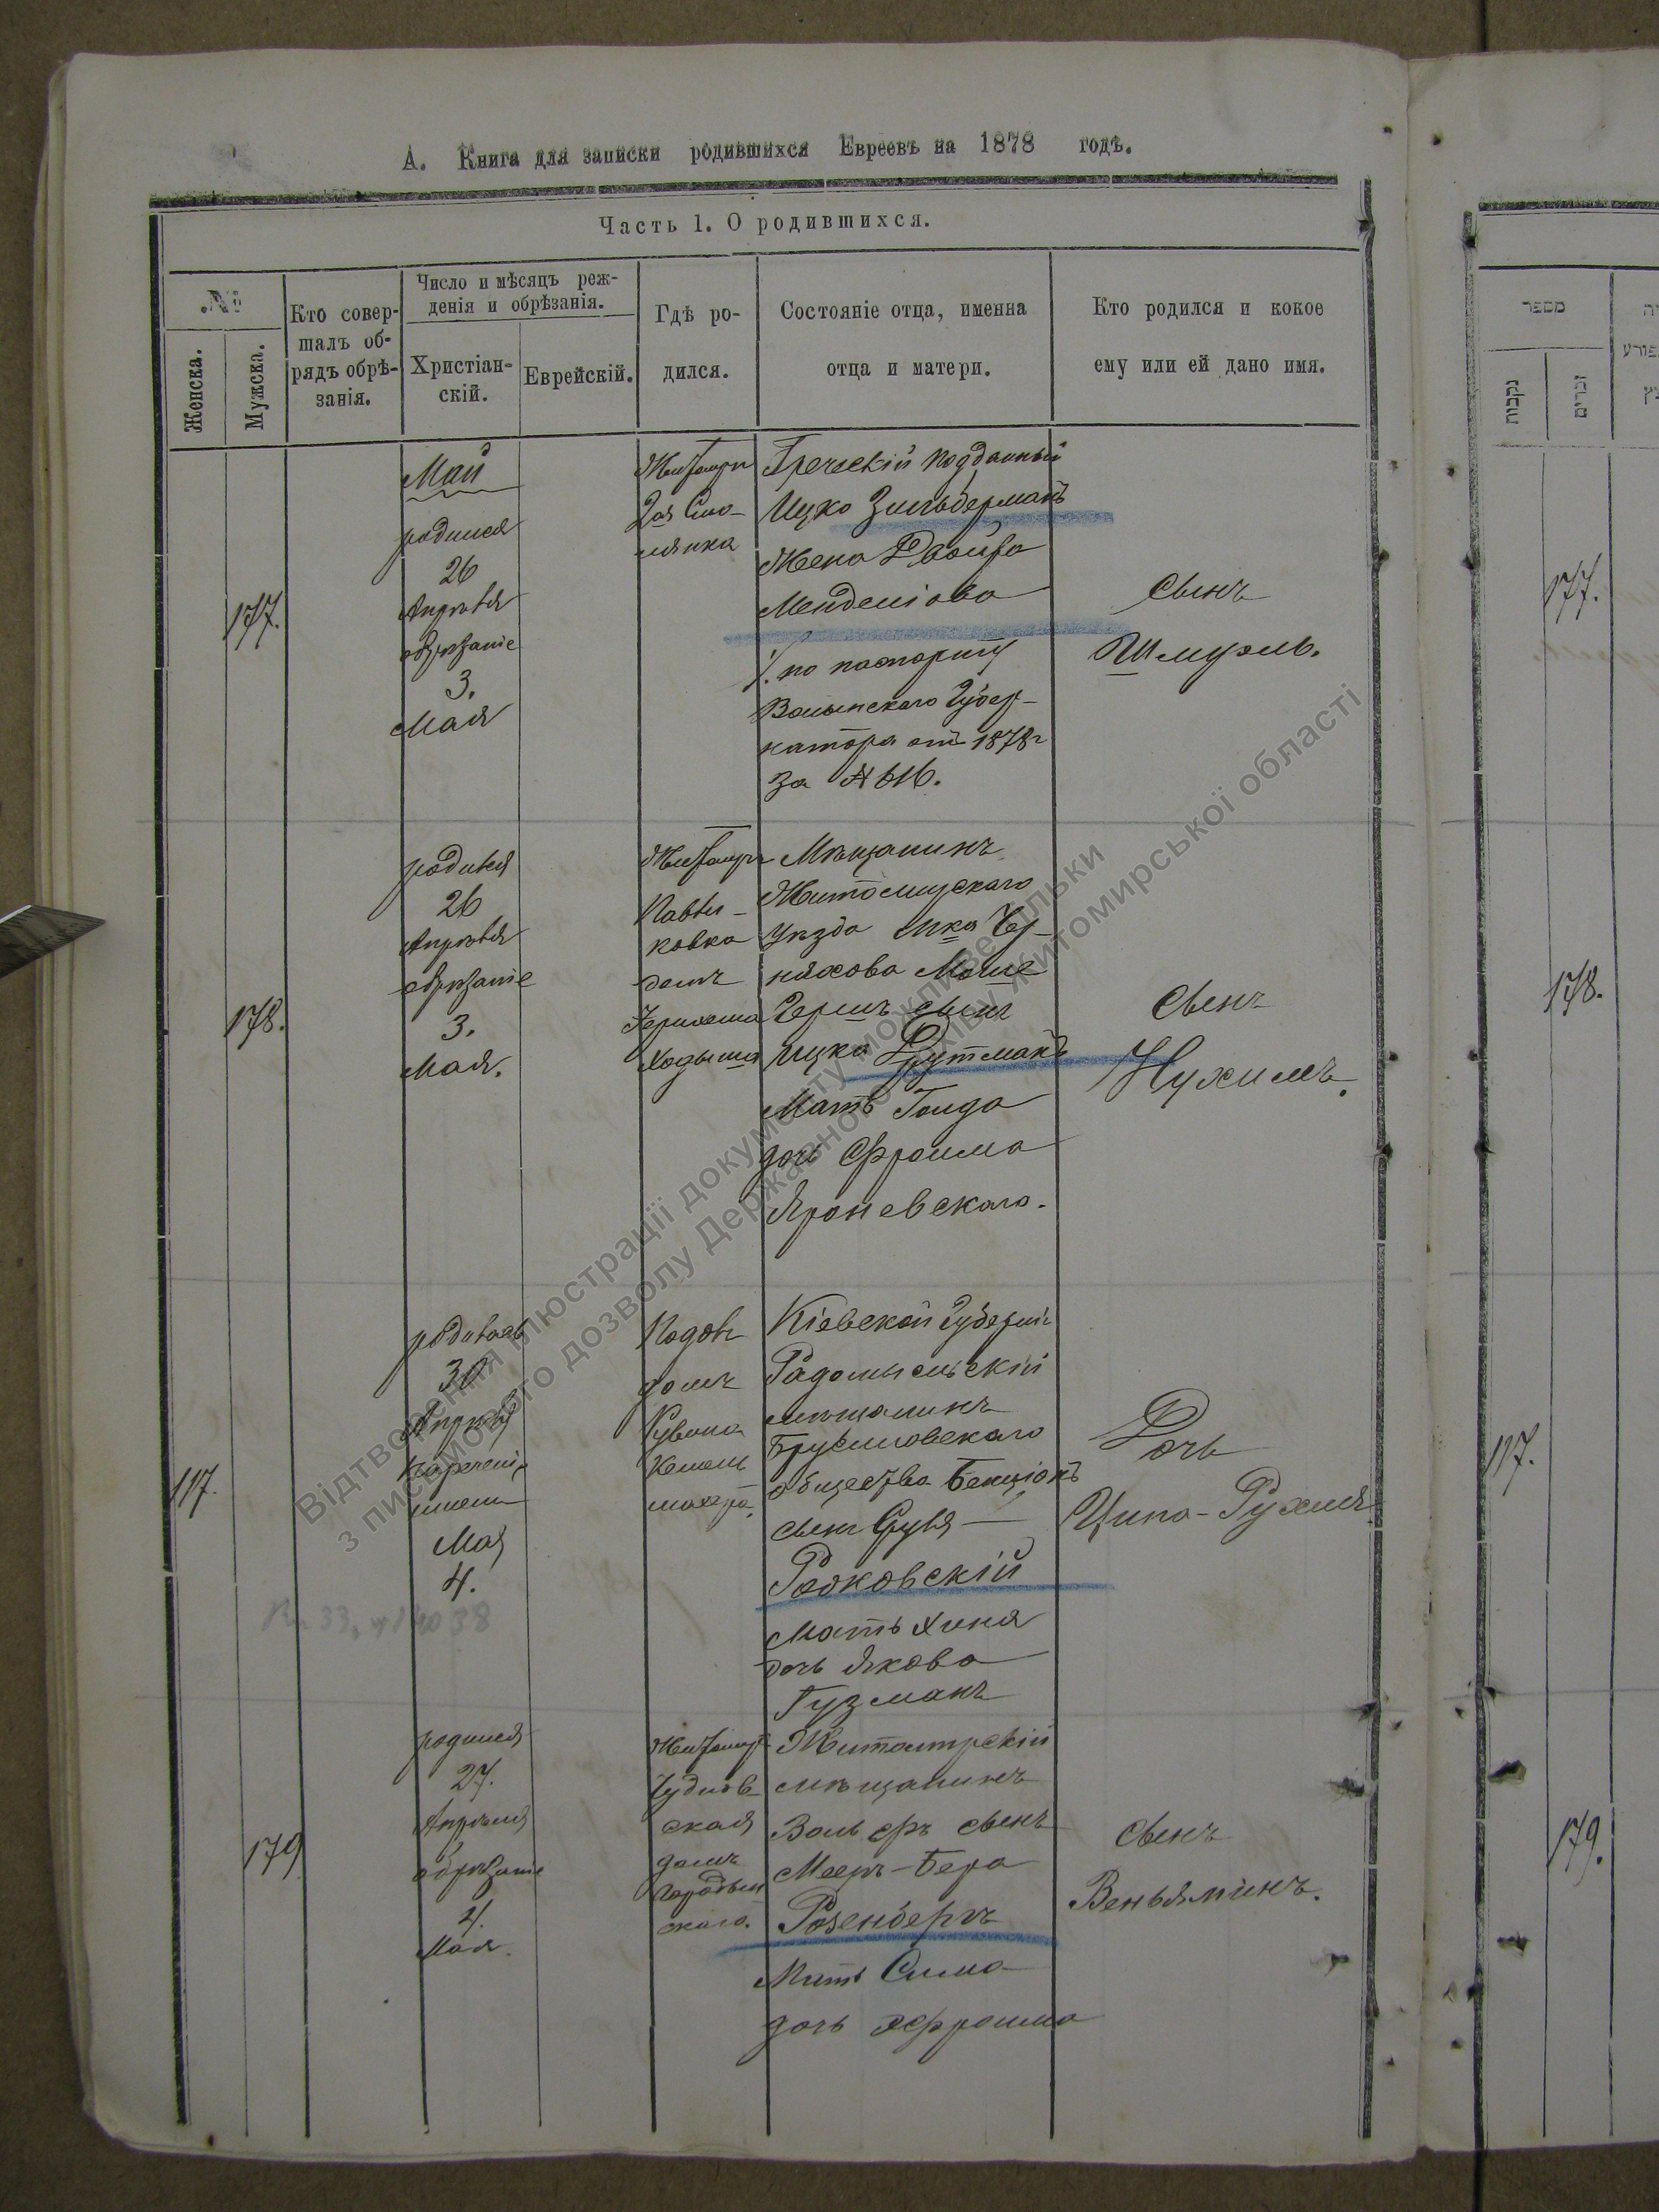 А. Книга для записки родившихся Евреевъ на 1878 годъ.
Часть 1. О родившихся.
№
Женска.
Мужска.
Кто совер-
шалъ об-
рядъ обрѣ-
занія.
Число и мѣсяцъ реж-
денія и обрѣзанія.
Христіан-
скій.
Еврейскій.
Гдѣ ро-
дился.
Состояніе отца, именна
отца и матери.
Кто родился и кокое
ему или ей дано имя.
177.
Май
родился
26
Апрѣля
обрѣзаніе
3.
Мая
Житомиръ
2ая
Греческій подданный
Ицко Зильберманъ
Жена Двойра
Менделіова
по паспорту
Волынскаго Губер-
натора отъ 1878г
За №
Сынъ
Шмуэль.
178.
родился
26
Апрѣля
обрѣзаніе
3.
Мая.
Житомиръ
Павли-
ковка
домъ
Мѣщанинъ
Житомирскаго
Уѣзда Мка Чер-
няхова Моше
Гершъ сынъ
Ицка Друтманъ
Мать Голда
дочь Фроима
Яроневскаго.
Сынъ
Нухимъ.
117.
родилась
30
Апрѣля
Нареченіе
имени
Мая
4.
домъ
Рувина
Кіевской Губерніи
Радомысльскій
мѣщанинъ
Брусиловскаго
общества Бенціонъ
сынъ Сруля
Радковскій
Мать Хина
дочь Якова
Гузманъ
Дочь
Ципа-Рухля.
179
родился
27.
Апрѣля
обрѣзаніе
4.
Мая.
Житомиръ
Чуднов-
ская
домъ
Житомирскій
мѣщанинъ
Вольфъ сынъ
Мееръ-Бера
Розенбергъ
Мать Сима
дочь Эфроима
Сынъ
Веньяминъ.
מספר
נקבות
זכרים
177.
178.
117.
179.
Відтворення ілюстрації документу можливе тільки
з письмового дозволу Державного архіву Житомирської області